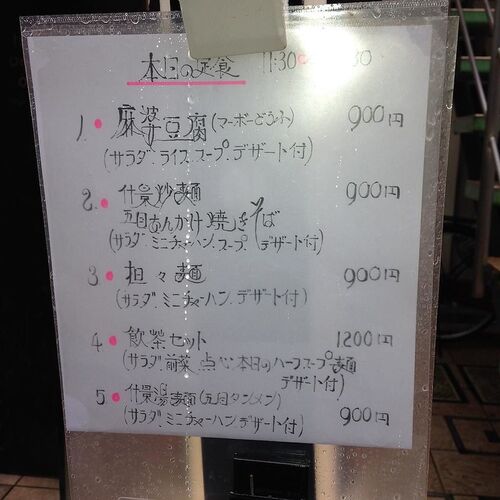 本日の定食 11:30 30
1. 麻婆豆腐(マーボーどうふ) 900円
(サラダ.ライス.スープ.デザート付)
2. 什景炒麺 900円
五目あんかけ焼きそば
(サラダ.ミニチャーハン.スープ.デザート付)
3. 担々麺 900円
(サラダ.ミニチャーハン.デザート付)
4. 飲茶セット 1200円
(サラダ.前菜.点心.本日のハーフスープ麺
デザート付)
5 什景湯麺(五目タンメン)
(サラダ.ミニチャーハン.デザート付) 900円